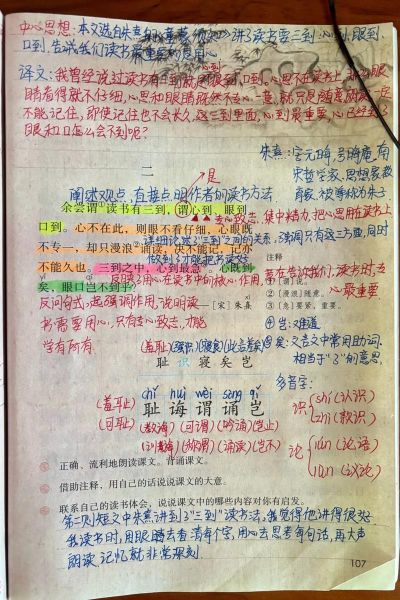 中心思想:本文选自朱熹的《童蒙须知》讲了读书要三到:心到、眼到、
口到,告诫我们读书最重要的是用心。
译文:我曾经说过读书有三到就是眼到、口到,心思不在书上,那么眼
心到
睛看得就不仔细,心思和眼睛既然不专心一意,就只是随意朗读,一定
不能记住,即使记住也不会长久,这三到里面,心到最重要,心已经到了
眼和口怎么会不到呢?
朱熹:字元晦,号晦庵,南
宋哲学家,思想家教
育家,被尊称为朱子
二
阐述观点,直接点明作者的读书方法
余尝谓①读书有三到,谓心到、眼到、
口到。心不在此,则眼不看仔细,心眼既
不专一,却只漫浪②诵读,决不能记,记亦
不能久也。三到之中,心到最急③。心既到
矣,眼口岂不到乎?
专心致志,集中精力,把心思用在读书上
详细论述了"三到"之间的关系,强调只有这三方面,同时
做到了才能把书读好
反问句式,起强调作用,说明读
书需要用心,只有专心致志,才能
学有所有
——[宋]朱熹
告诉我们,读书时,专
心最重要
注释
①〔谓〕说。
②〔漫浪〕随意。
③〔急〕要紧,重要。
④岂:难道
⑤矣:文言文中常用助词.
相当于"了"的意思
耻 识 寝 矣 岂
chǐ huì wèi sòng qǐ
耻 诲 谓 诵 岂
(羞耻)
(可耻)
(教诲)(可谓)(吟诵)(岂止)
(训诲)(称谓)(诵读)(岂不)
多音字:
识 shí(认识)
zhì(款识)
论 lún(论语)
lùn(议论)
正确、流利地朗读课文。背诵课文。
借助注释,用自己的话说说课文的大意。
联系自己的读书体会,说说课文中的哪些内容对你有启发。
第二则短文中朱熹讲到了"三到"读书方法,我觉得他讲得很好
我读书时,用眼睛去看清每个字,用心去思考每句话,再大声
朗读,记忆就非常深刻
107